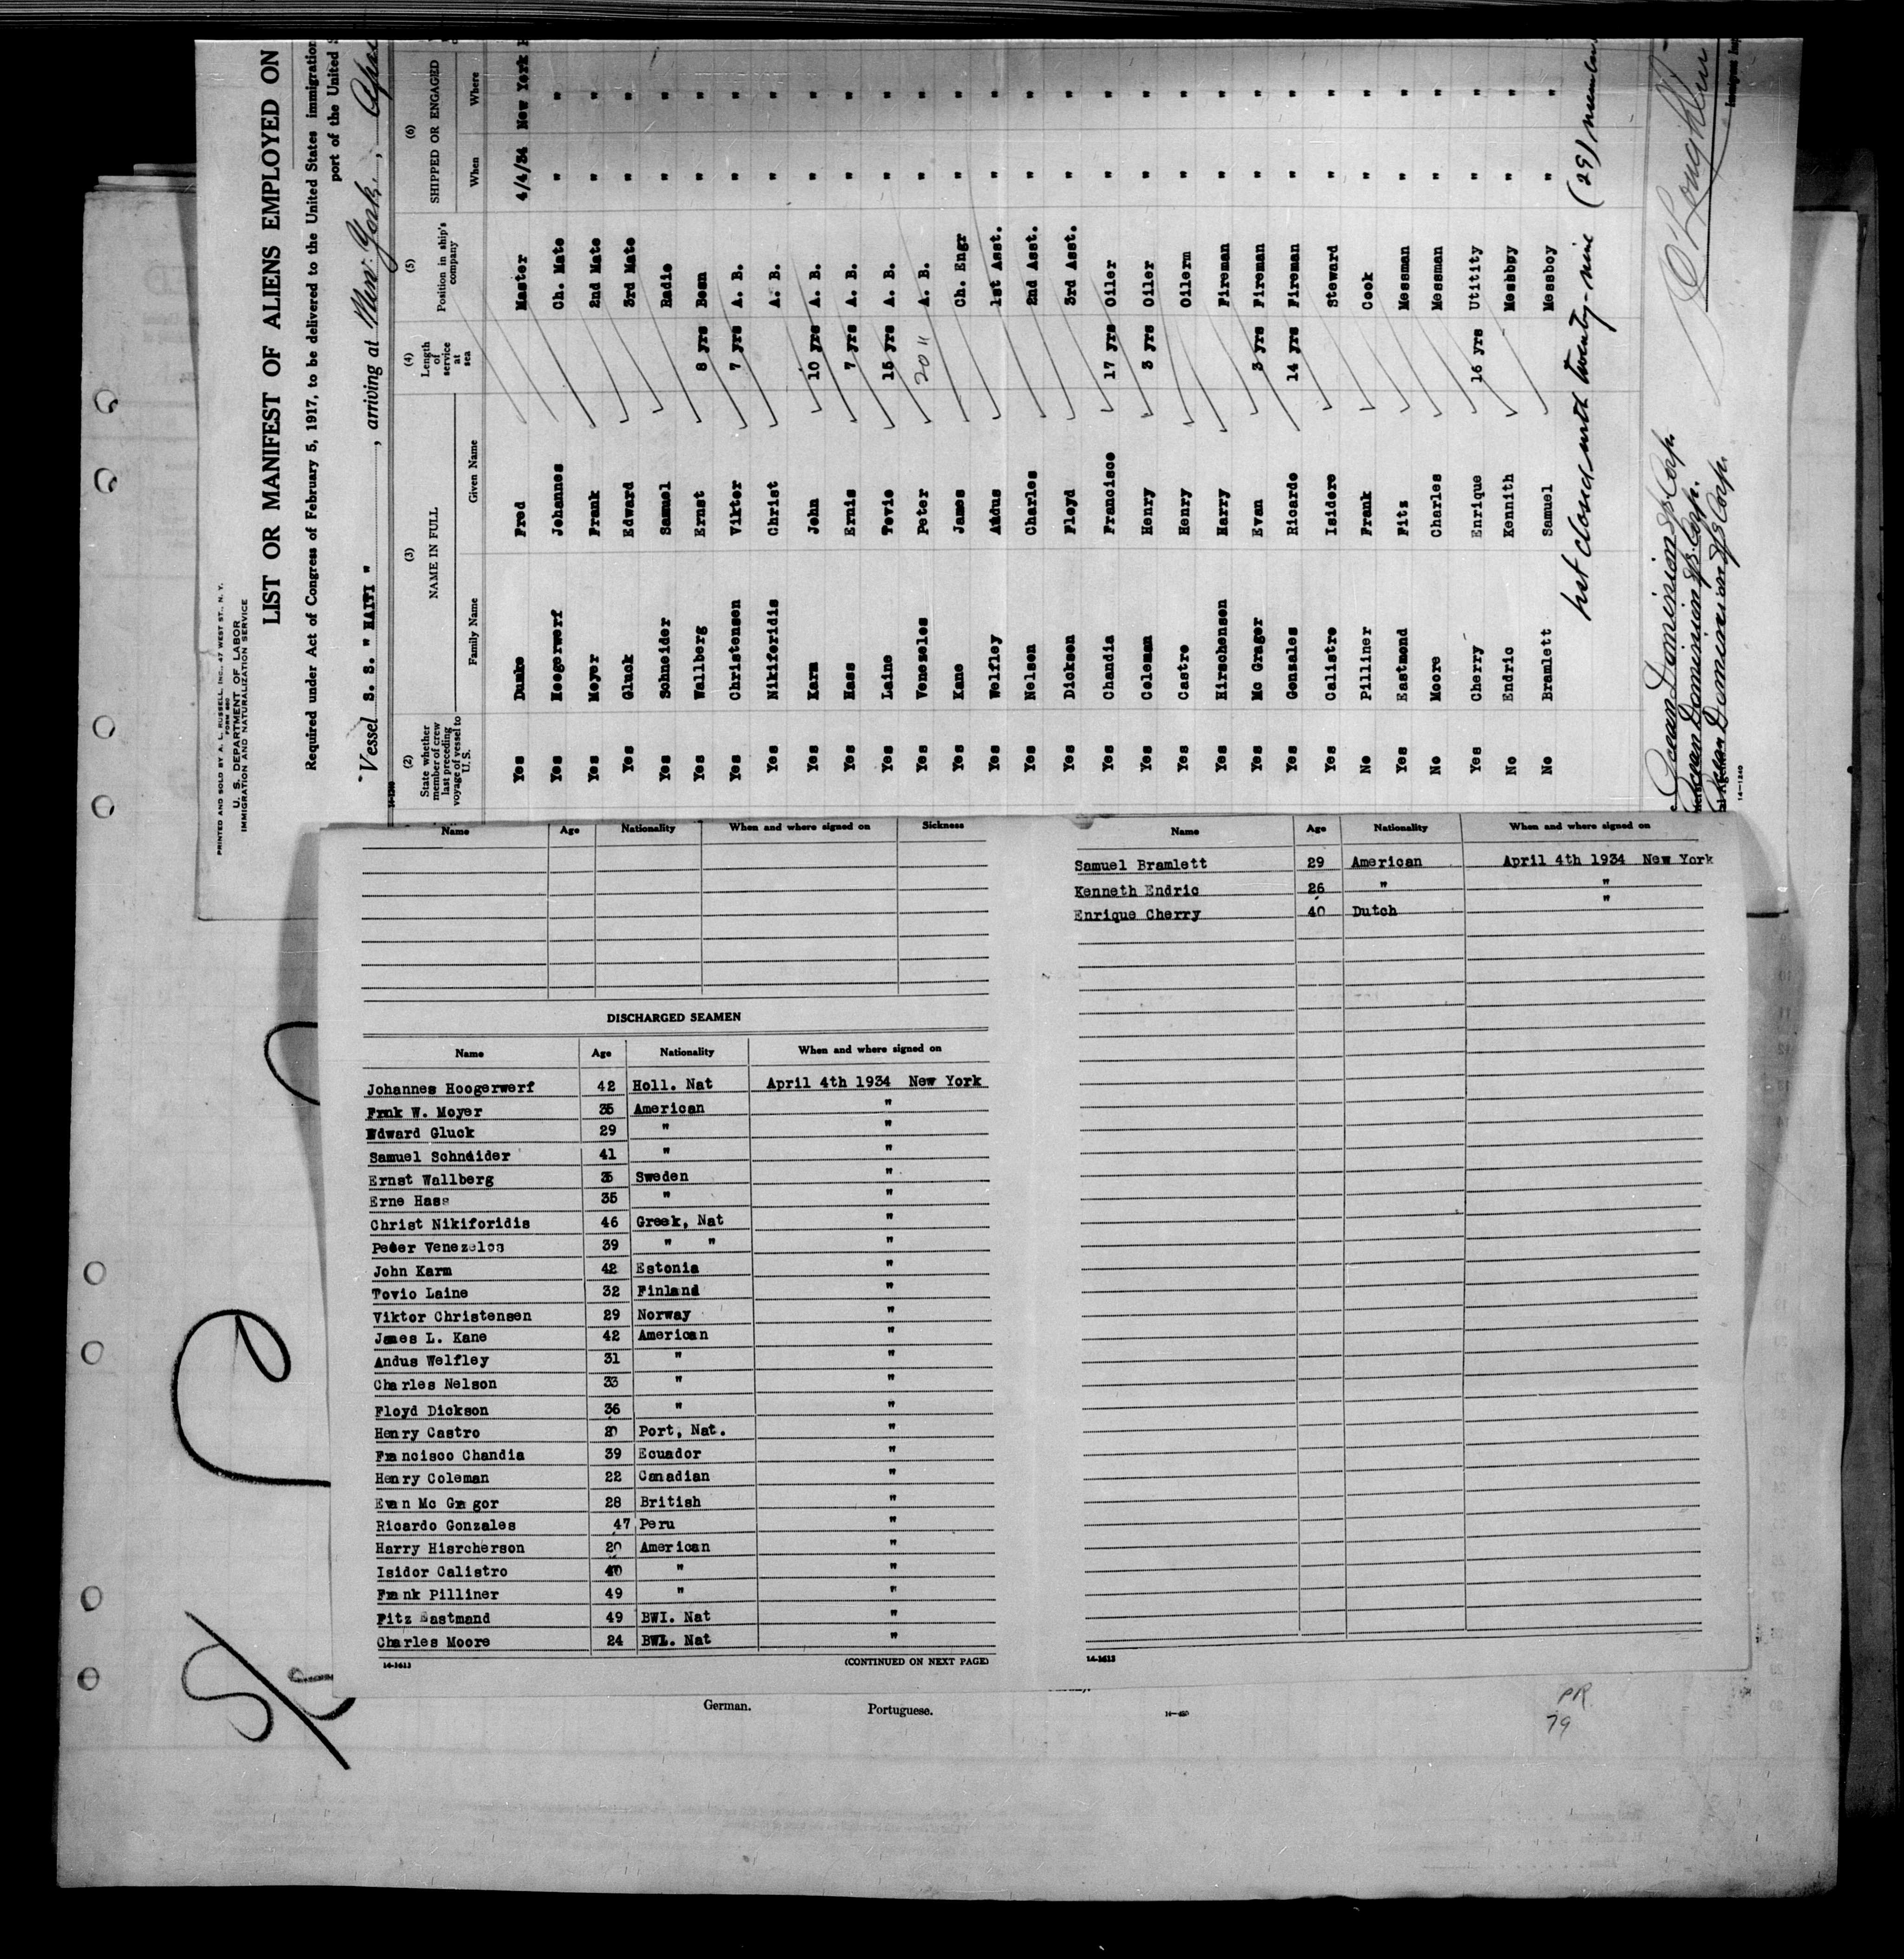 PRINTED AND SOLD BY A. L. RUSSELL, INC., 47 WEST ST., N. Y.
FORM 680
U. S. DEPARTMENT OF LABOR
IMMIGRATION AND NATURALIZATION SERVICE
LIST OR MANIFEST OF ALIENS EMPLOYED ON
Required under Act of Congress of February 5, 1917, to be delivered to the United States immigration
port of the United
Vessel S. S. " HAITI " , arriving at New York ,
(2) (3) (4) (5) (6)
State whether member of crew last preceding voyage of vessel to U. S. NAME IN FULL Length of service at sea Position in ship's company SHIPPED OR ENGAGED
Family Name Given Name When Where
Yes Dumke Fred Master 4/4/34 New York
Yes Hoogerwerf Johannes Ch. Mate " "
Yes Moyer Frank 2nd Mate " "
Yes Gluck Edward 3rd Mate " "
Yes Schneider Samuel Radio " "
Yes Wallberg Ernst 8 yrs Bosn " "
Yes Christensen Viktor 7 yrs A. B. " "
Yes Nikiforidis Christ A. B. " "
Yes Karm John 10 yrs A. B. " "
Yes Hass Ernis 7 yrs A. B. " "
Yes Laine Tovio 15 yrs A. B. " "
Yes Venezelos Peter 20 " A. B. " "
Yes Kane James Ch. Engr " "
Yes Wolfley Andus 1st Asst. " "
Yes Nelson Charles 2nd Asst. " "
Yes Dickson Floyd 3rd Asst. " "
Yes Chandia Francisco 17 yrs Oiler " "
Yes Coleman Henry 3 yrs Oiler " "
Yes Castro Henry Oilerm " "
Yes Hirschensen Harry Fireman " "
Yes Mc Grager Evan 3 yrs Fireman " "
Yes Gonzales Ricardo 14 yrs Fireman " "
Yes Calistro Isidore Steward " "
No Pilliner Frank Cook " "
Yes Eastmond Fitz Messman " "
No Moore Charles Messman " "
Yes Cherry Enrique 16 yrs Utitity " "
No Endric Kennith Messboy " "
No Bramlett Samuel Messboy " "
list closed with twenty-nine (29)
Ocean Dominion SS Corp.
Ocean Dominion SS Corp.
Ocean Dominion SS Corp.
14-1240
Name Age Nationality When and where signed on Sickness
DISCHARGED SEAMEN
Name Age Nationality When and where signed on
Johannes Hoogerwerf 42 Holl. Nat April 4th 1934 New York
Frnk W. Moyer 35 American "
Edward Gluck 29 " "
Samuel Schneider 41 " "
Ernst Wallberg 35 Sweden "
Erne Hass 35 " "
Christ Nikiforidis 46 Greek, Nat "
Peter Venezelos 39 " " "
John Karm 42 Estonia "
Tovio Laine 32 Finland "
Viktor Christensen 29 Norway "
James L. Kane 42 American "
Andus Welfley 31 " "
Charles Nelson 33 " "
Floyd Dickson 36 " "
Henry Castro Port, Nat. "
Francisco Chandia 39 Ecuador "
Henry Coleman 22 Canadian "
Evan Mc Gregor 28 British "
Ricardo Gonzales 47 Peru "
Harry Hisrcherson 20 American "
Isidor Calistro 40 " "
Frank Pilliner 49 " "
Fitz Eastmand 49 BWI. Nat "
Charles Moore 24 BWI. Nat "
14-1613 (CONTINUED ON NEXT PAGE)
Name Age Nationality When and where signed on
Samuel Bramlett 29 American April 4th 1934 New York
Kenneth Endric 26 " "
Enrique Cherry 40 Dutch "
14-1613
German. Portuguese.
PR
79